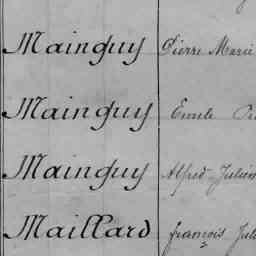 Mainguy Pierre Marie
Mainguy Emile
Mainguy Alfred Julien
Maillard françois Jul